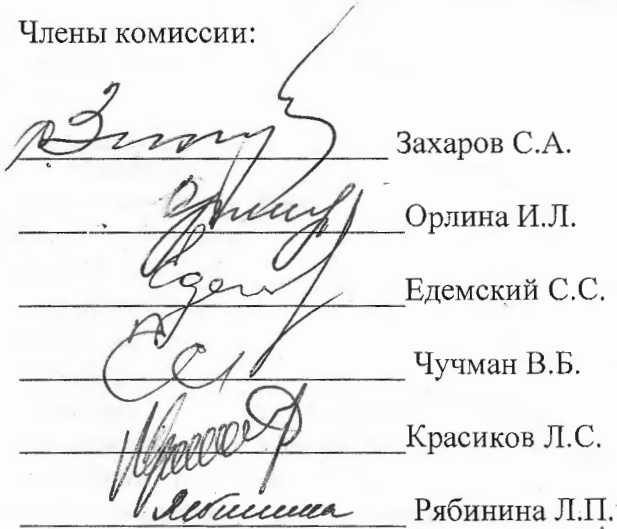 Члены комиссии:
Захаров С.А.
Орлина И.Л.
Едемский С.С.
Чучман В.Б.
Красиков Л.С.
Рябинина Л.П.